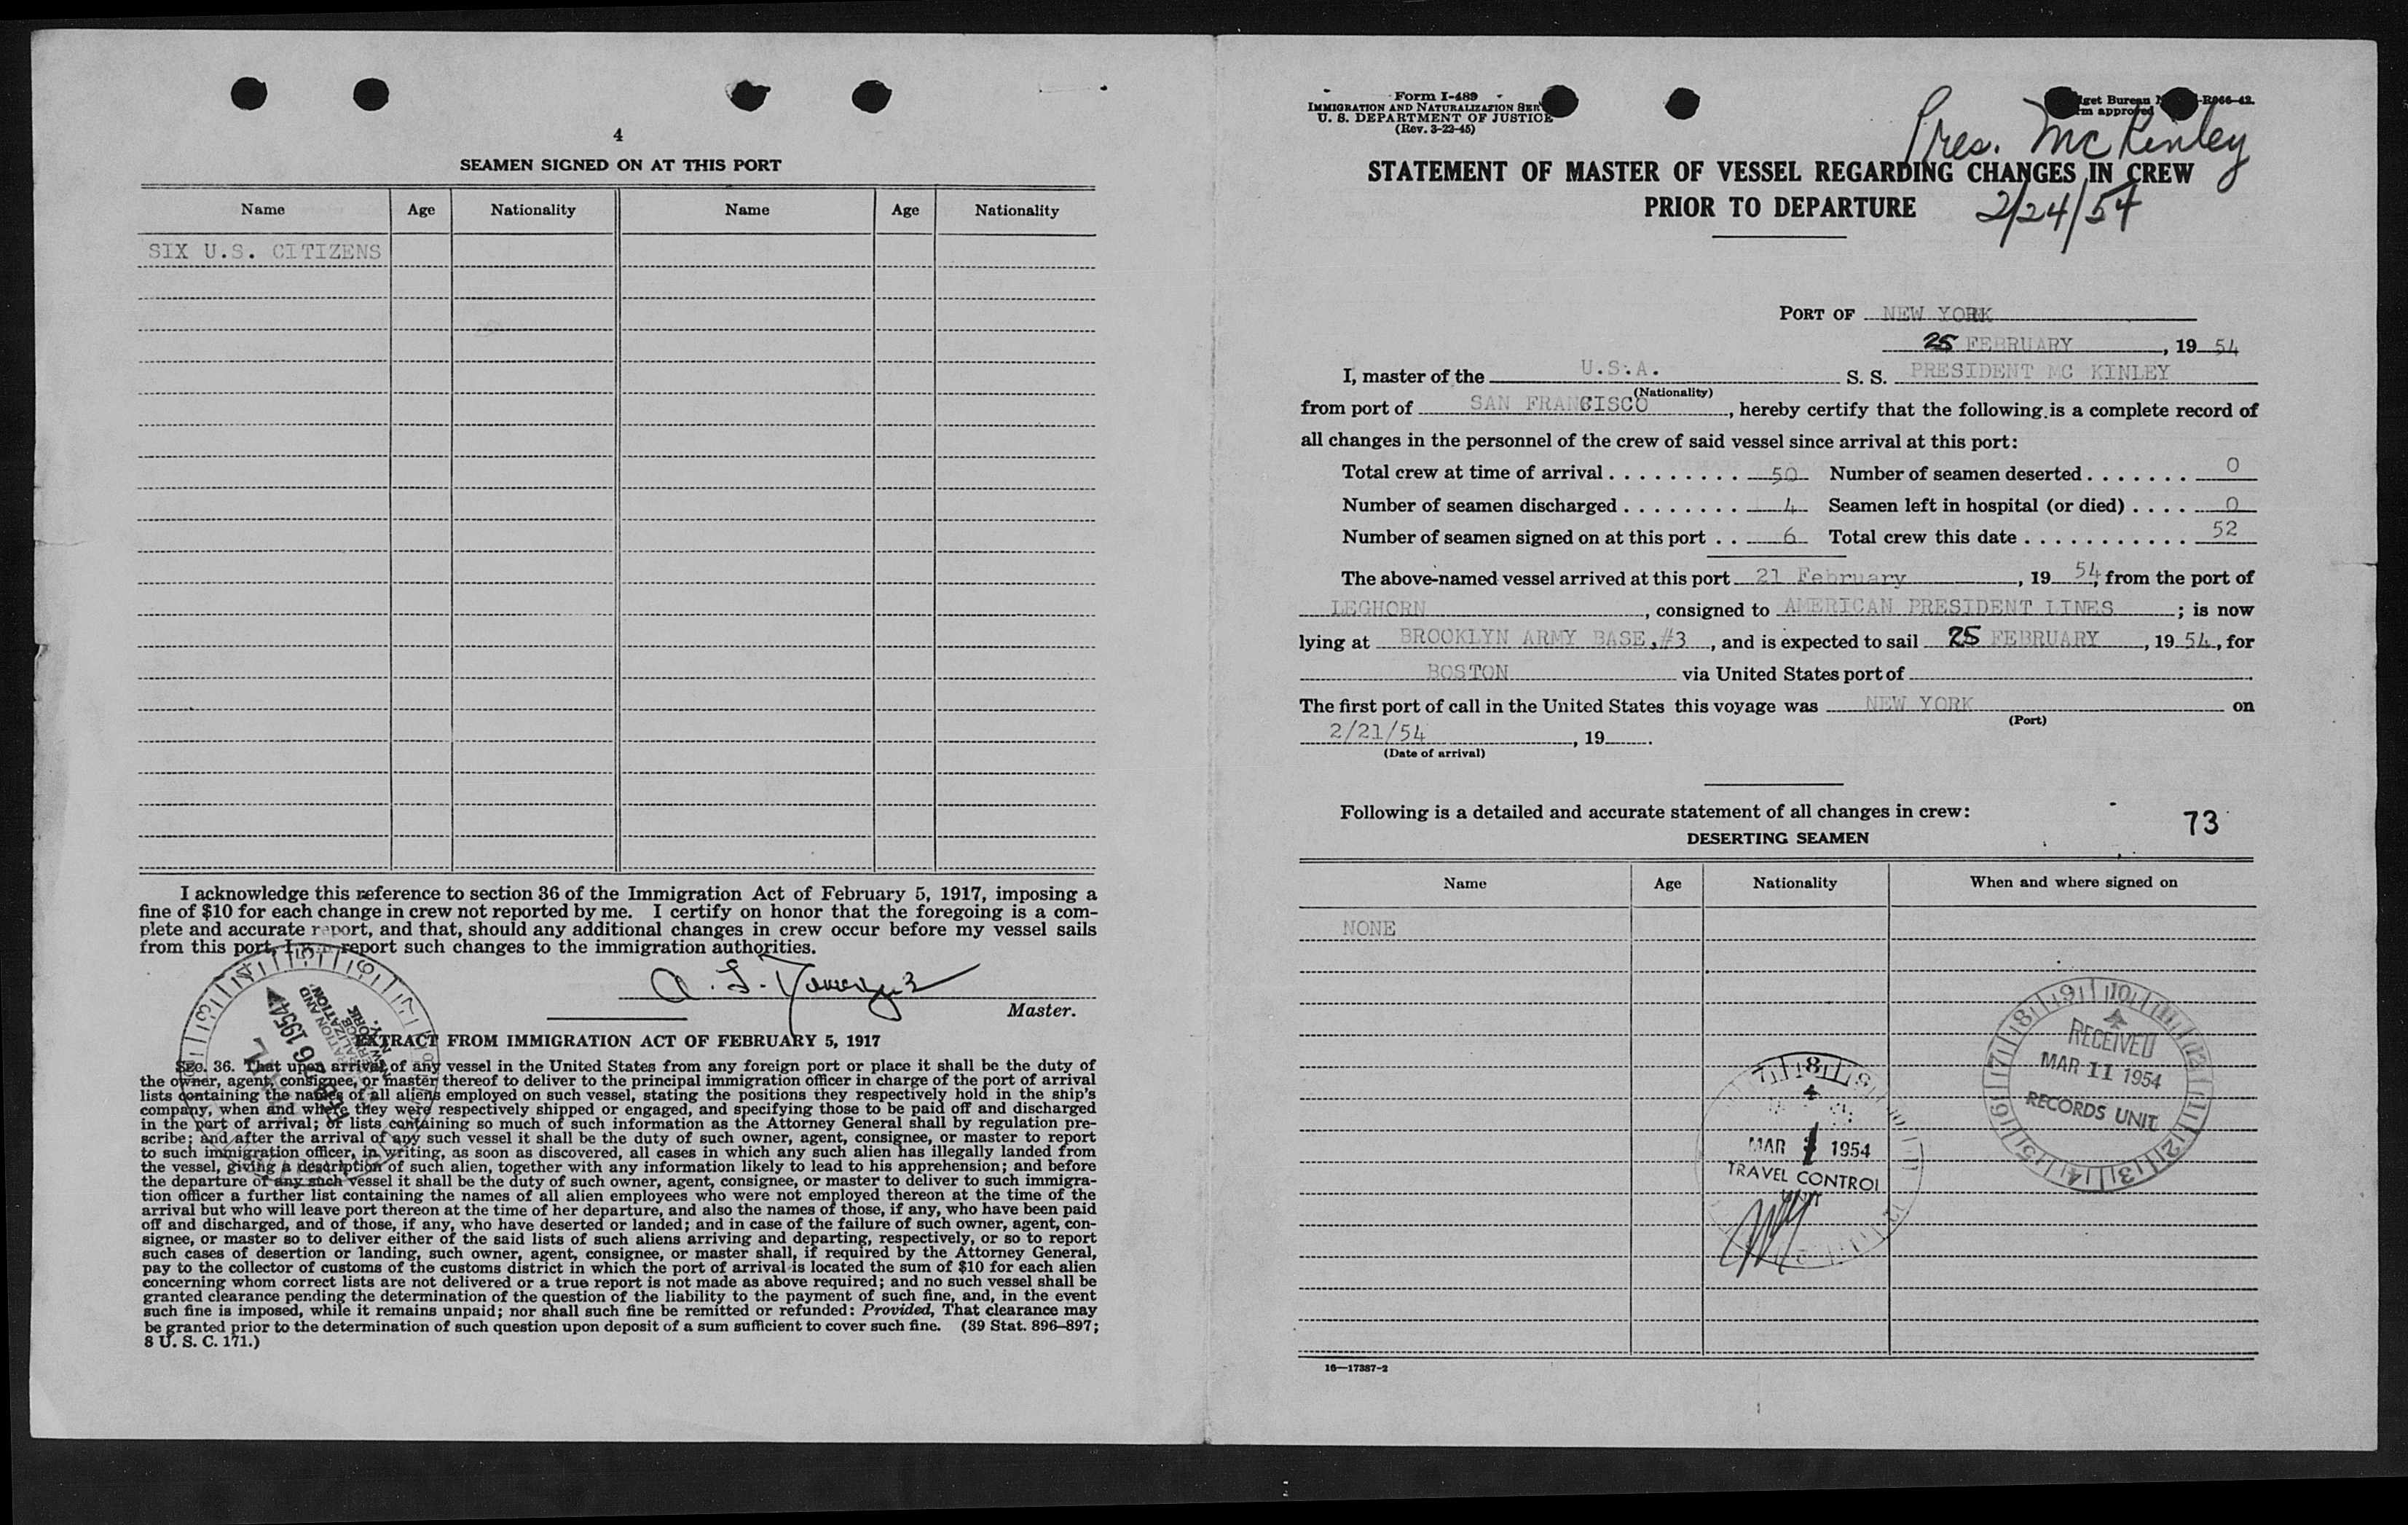 4
SEAMEN SIGNED ON AT THIS PORT
Name Age Nationality Name Age Nationality
SIX U.S. CITIZENS
I acknowledge this reference to section 36 of the Immigration Act of February 5, 1917, imposing a
fine of $10 for each change in crew not reported by me. I certify on honor that the foregoing is a com-
plete and accurate report, and that, should any additional changes in crew occur before my vessel sails
from this port, I report such changes to the immigration authorities.
Master.
EXTRACT FROM IMMIGRATION ACT OF FEBRUARY 5, 1917
SEC. 36. That upon arrival of any vessel in the United States from any foreign port or place it shall be the duty of
the owner, agent, consignee, or master thereof to deliver to the principal immigration officer in charge of the port of arrival
lists containing the names of all aliens employed on such vessel, stating the positions they respectively hold in the ship's
company, when and where they were respectively shipped or engaged, and specifying those to be paid off and discharged
in the port of arrival; or lists containing so much of such information as the Attorney General shall by regulation pre-
scribe; and after the arrival of any such vessel it shall be the duty of such owner, agent, consignee, or master to report
to such immigration officer, in writing, as soon as discovered, all cases in which any such alien has illegally landed from
the vessel, giving a description of such alien, together with any information likely to lead to his apprehension; and before
the departure of any such vessel it shall be the duty of such owner, agent, consignee, or master to deliver to such immigra-
tion officer a further list containing the names of all alien employees who were not employed thereon at the time of the
arrival but who will leave port thereon at the time of her departure, and also the names of those, if any, who have been paid
off and discharged, and of those, if any, who have deserted or landed; and in case of the failure of such owner, agent, con-
signee, or master so to deliver either of the said lists of such aliens arriving and departing, respectively, or so to report
such cases of desertion or landing, such owner, agent, consignee, or master shall, if required by the Attorney General,
pay to the collector of customs of the customs district in which the port of arrival is located the sum of $10 for each alien
concerning whom correct lists are not delivered or a true report is not made as above required; and no such vessel shall be
granted clearance pending the determination of the question of the liability to the payment of such fine, and, in the event
such fine is imposed, while it remains unpaid; nor shall such fine be remitted or refunded: Provided, That clearance may
be granted prior to the determination of such question upon deposit of a sum sufficient to cover such fine. (39 Stat. 896-897;
8 U. S. C. 171.)
Form I-489
IMMIGRATION AND NATURALIZATION SER
U. S. DEPARTMENT OF JUSTICE
(Rev. 3-22-45)
get Bureau -R066-42.
rm approved
Pres. McKinley
2/24/54
STATEMENT OF MASTER OF VESSEL REGARDING CHANGES IN CREW
PRIOR TO DEPARTURE
PORT OF NEW YORK
25 FEBRUARY, 19 54
I, master of the U.S.A. S. S. PRESIDENT MC KINLEY
(Nationality)
from port of SAN FRANCISCO, hereby certify that the following is a complete record of
all changes in the personnel of the crew of said vessel since arrival at this port:
Total crew at time of arrival . . . . . . . . . 50 Number of seamen deserted . . . . . . . 0
Number of seamen discharged . . . . . . . . 4 Seamen left in hospital (or died) . . . . 0
Number of seamen signed on at this port . . 6 Total crew this date . . . . . . . . . . . 52
The above-named vessel arrived at this port 21 February, 19 54, from the port of
LEGHORN, consigned to AMERICAN PRESIDENT LINES; is now
lying at BROOKLYN ARMY BASE,#3, and is expected to sail 25 FEBRUARY, 19 54, for
BOSTON via United States port of .
The first port of call in the United States this voyage was NEW YORK on
(Port)
2/21/54, 19 .
(Date of arrival)
Following is a detailed and accurate statement of all changes in crew:
73
DESERTING SEAMEN
Name Age Nationality When and where signed on
NONE
RECEIVED
MAR 11 1954
RECORDS UNIT
MAR 1954
TRAVEL CONTROL
16—17387-2